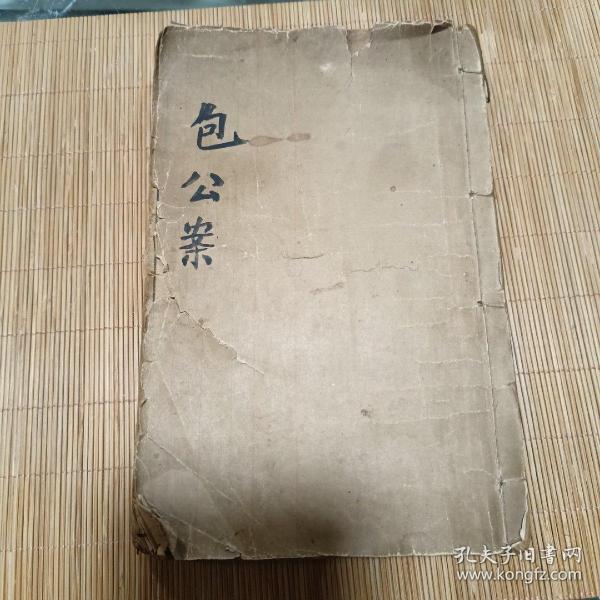 包公案
孔夫子旧書网
www.kongfz.com